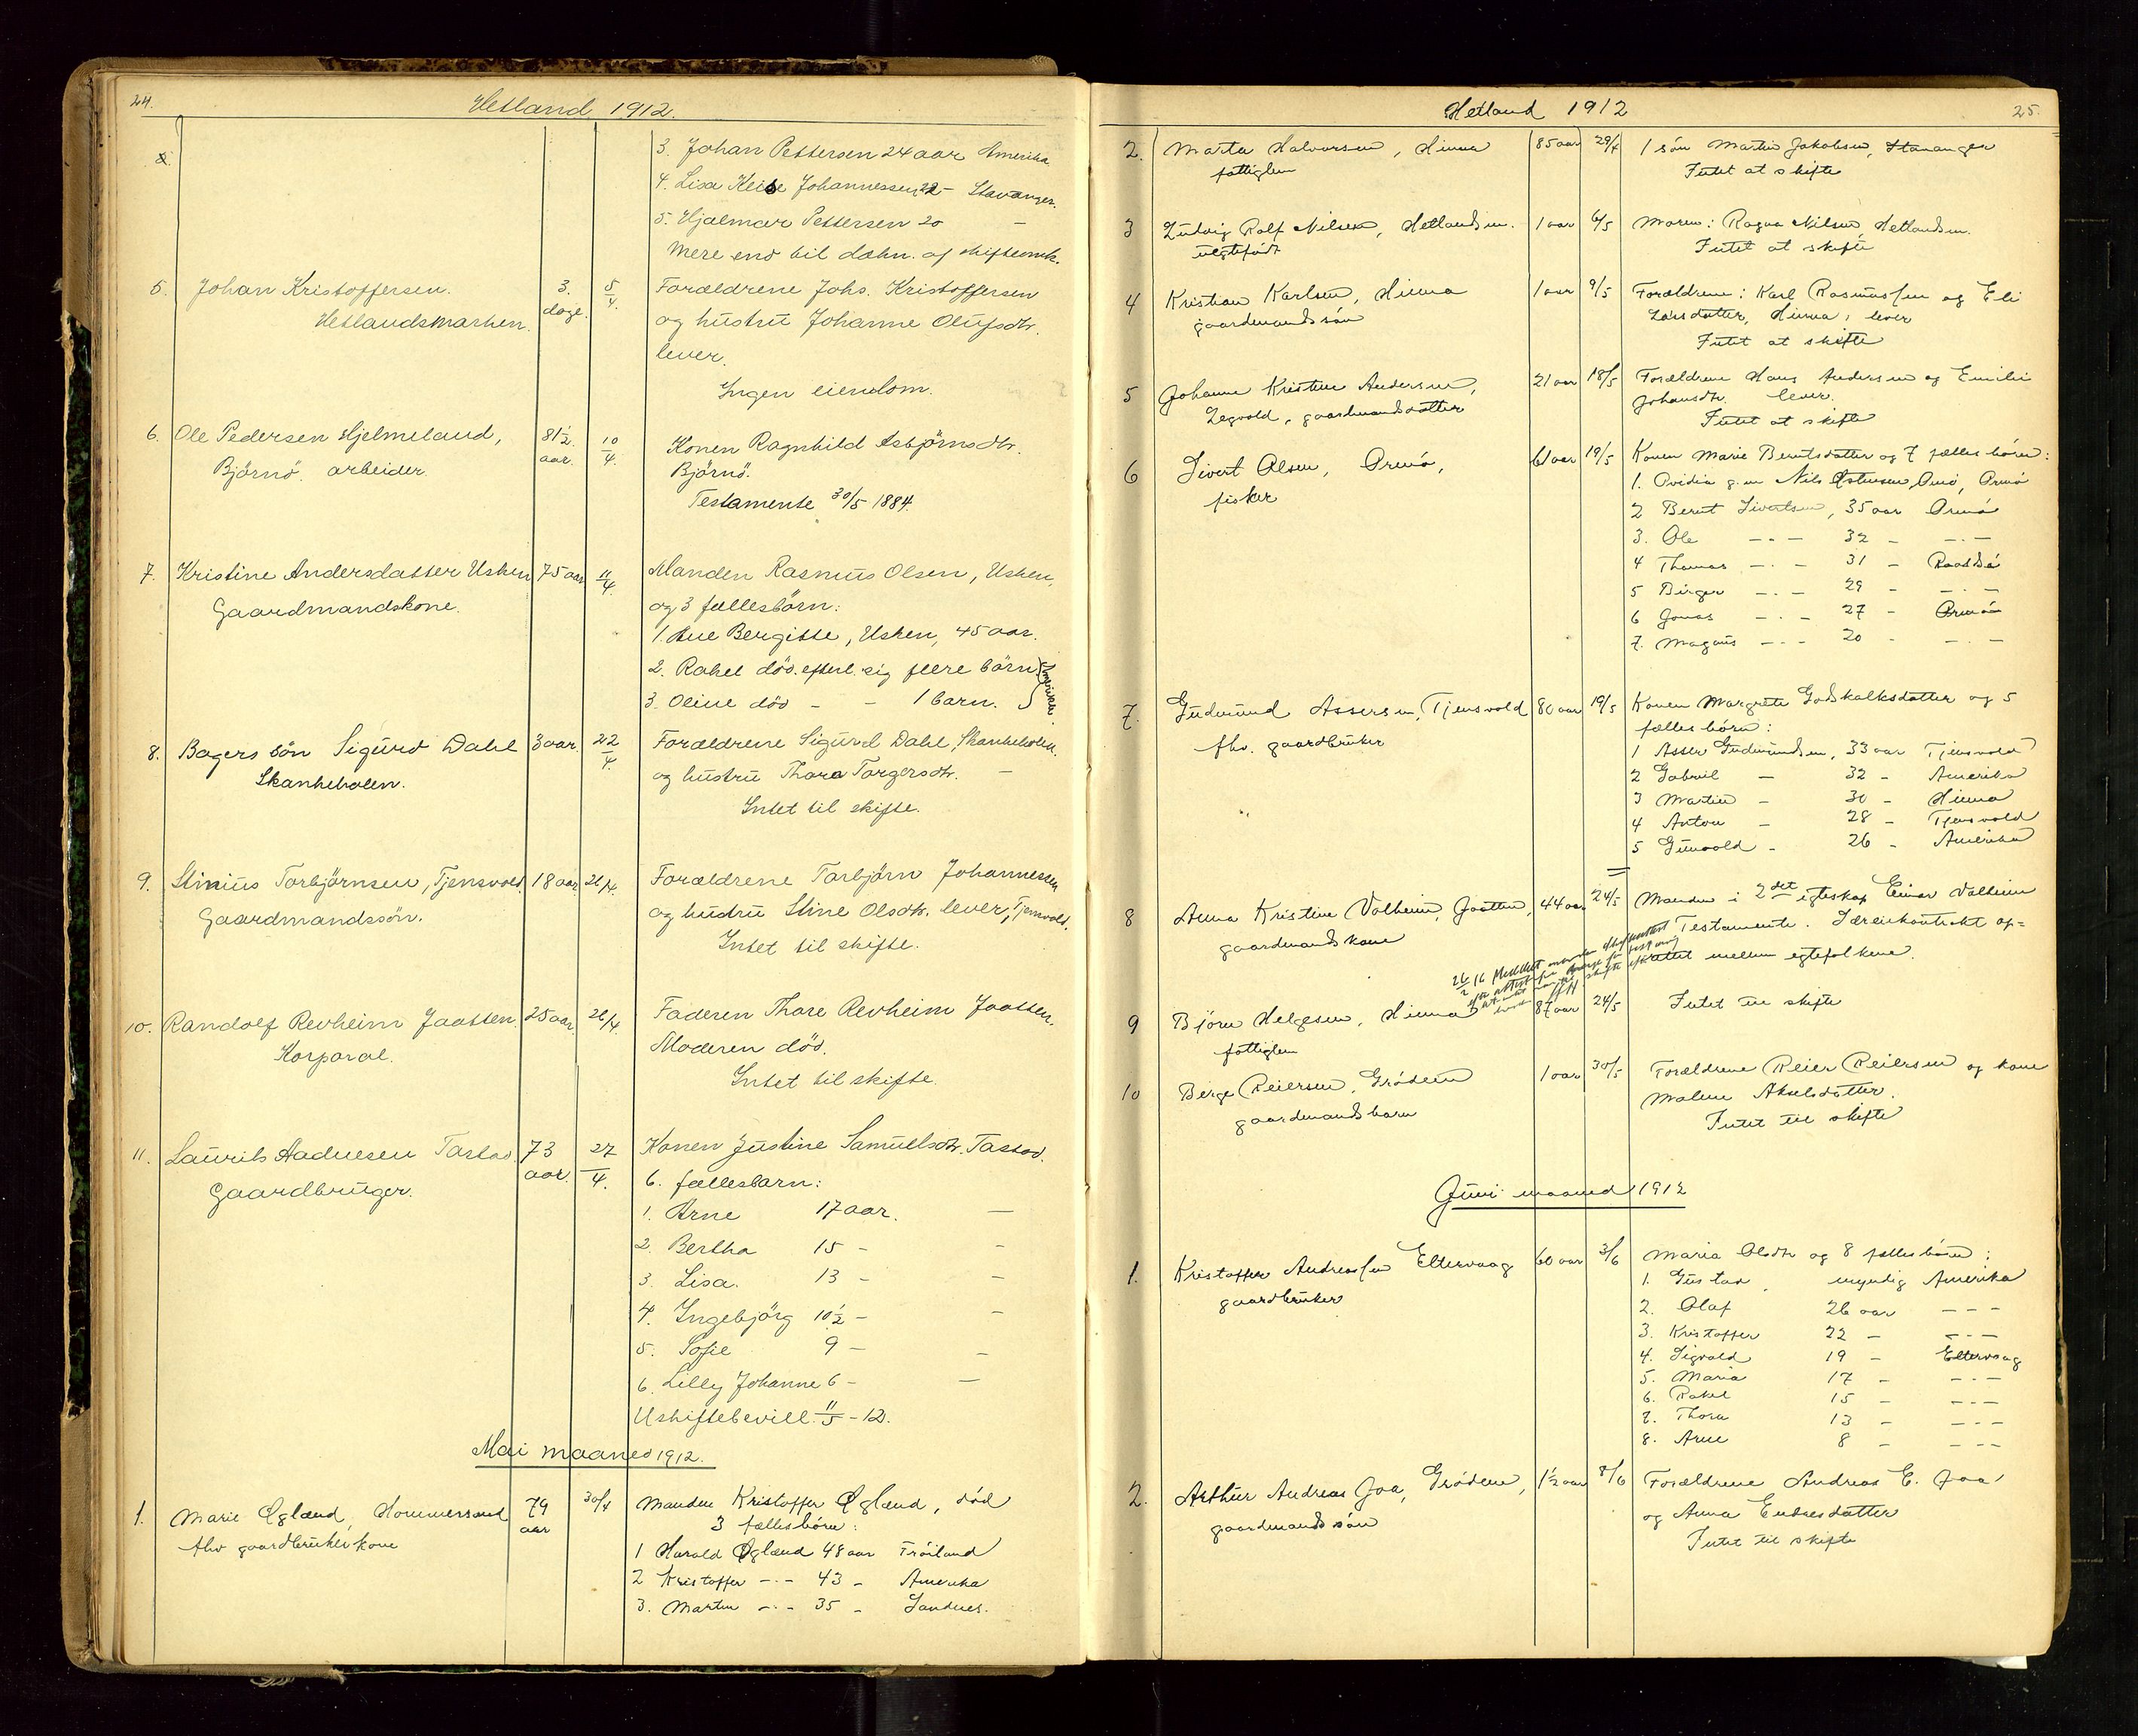 24.
Hetland 1912.
3. Johan Pettersen 24 aar Amerika
4. Lisa Johannessen 22 – Stavanger.
5. Hjalmar Pettersen 20 –
Mere end til dækn. af skifteomk.
5. Johan Kristoffersen. 3. 5/4. Forældrene Johs. Kristoffersen
Hetlandsmarken. dage. og hustru Johanne Olufsdtr.
lever.
Ingen eiendom.
6. Ole Pedersen Hjelmeland, 81½ 10/4. Konen Ragnhild Asbjörnsdtr.
Björnö. arbeider. aar. Björnö.
Testamente 30/5 1884.
7. Kristine Andersdatter Usken 75 aar 11/4. Manden Rasmus Olsen, Usken,
Gaardmandskone. og 3 fællesbörn:
1. Ane Bergitte, Usken, 45 aar.
2. Rakel död. efterl. sig flere börn } Amerika.
3. Oline död – – 1 barn.
8. Bagers sön Sigurd Dahl 3 aar. 22/4. Forældrene Sigurd Dahl, Skankeholen.
Skankeholen. og hustru Thora Torgersdtr. –
Intet til skifte.
9. Stinius Torbjörnsen, Tjensvold. 18 aar 26/4. Forældrene Torbjörn Johannessen
Gaardmandssön. og hustru Stine Olsdtr. lever, Tjensvold.
Intet til skifte.
10. Randolf Revheim Jaatten. 25 aar 26/4. Faderen Thore Revheim Jaatten.
Korporal. Moderen död.
Intet til skifte.
11. Laurits Aadnesen Tastad. 73 27/4. Konen Justine Samuelsdtr. Tastad.
Gaardbruger. aar. 6. fællesbarn:
1. Arne 17 aar. –
2. Bertha 15 – –
3. Lisa. 13 – –
4. Ingebjörg 10½ – –
5. Sofie 9 – –
6. Lilly Johanne 6 – –
Uskiftebevill. 11/5 – 12.
Mai maaned 1912.
1. Marie Øglænd, Hommersand 79 30/4 Manden Kristoffer Øglænd, död
fhv gaardbrukerkone aar 3 fællesbörn:
1 Harald Øglænd 48 aar Fröiland
2 Kristoffer –·– 43 – Amerika
3. Martin –·– 35 – Sandnes.
Hetland 1912
25.
2. Marta Halvorsen, Hinna 85 aar 29/4 1 sön Martin Jakobsen, Stavanger
fattiglem Intet at skifte
3 Ludvig Rolf Nilsen, Hetlandsm. 1 aar 6/5 Moren: Ragna Nilsen, Hetlandsm.
uegtefödt Intet at skifte
4 Kristian Karlsen, Hinna 1 aar 9/5 Forældrene: Karl Rasmussen og Eli
gaardmandssön Larsdatter, Hinna, lever
Intet at skifte
5 Johanne Kristine Andersen, 21 aar 18/5 Forældrene Hans Andersen og Emilie
gaardmandsdatter Johansdtr. lever.
Intet at skifte
6 Sivert Olsen, Ormö, 61 aar 19/5 Konen Marie Berntsdatter og 7 fælles börn:
fisker 1. Ovidia g. m Nils Østensen, Ormö
2 Bernt Sivertsen, 35 aar Ormö
3. Ole –·– 32 – –·–
4 Thomas –·– 31 –
5 Birger –·– 29 – –·–
6 Jonas –·– 27 – Ormö
7. Magnus –·– 20 – –·–
7. Gudmund Assersen, Tjensvold 80 aar 19/5 Konen Margrete Godskalksdatter og 5
fhv. gaardbruker fælles börn:
1 Asser Gudmundsen, 33 aar Tjensvold
2 Gabriel – 32 – Amerika
3 Martin – 30 – Hinna
4 Anton – 28 – Tjensvold
5 Gunvald – 26 – Amerika
8 Anna Kristine Valheim, Jaatten, 44 aar 24/5 Manden i 2det egteskap Einar Valheim
gaardmandskone Testamente. Særeiekontrakt op=
rettet mellem egtefolkene.
9 Björn Helgesen, Hinna 87 aar 24/5 Intet til skifte
fattiglem
10 Berge Reiersen, Grödem 1 aar 30/5 Forældrene Reier Reiersen og kone
gaardmandsbarn Malene Akselsdatter.
Intet til skifte
Juni maaned 1912
1. Kristoffer Andreassen Eltervaag 60 aar 3/6 Maria Olsdtr og 8 fælles börn:
gaardbruker 1. Gustav, myndig Amerika
2. Olaf 26 aar –·–
3. Kristoffer 22 – –·–
4. Sigvald 19 – Eltervaag
5. Maria 17 – –·–
6. Rakel 15 – –·–
7. Thora 13 – –·–
8. Arne 8 – –·–
2. Arthur Andreas Goa, Grödem, 1½ aar 8/6 Forældrene Andreas E. Goa
gaardmandssön og Anna Endresdatter
Intet til skifte